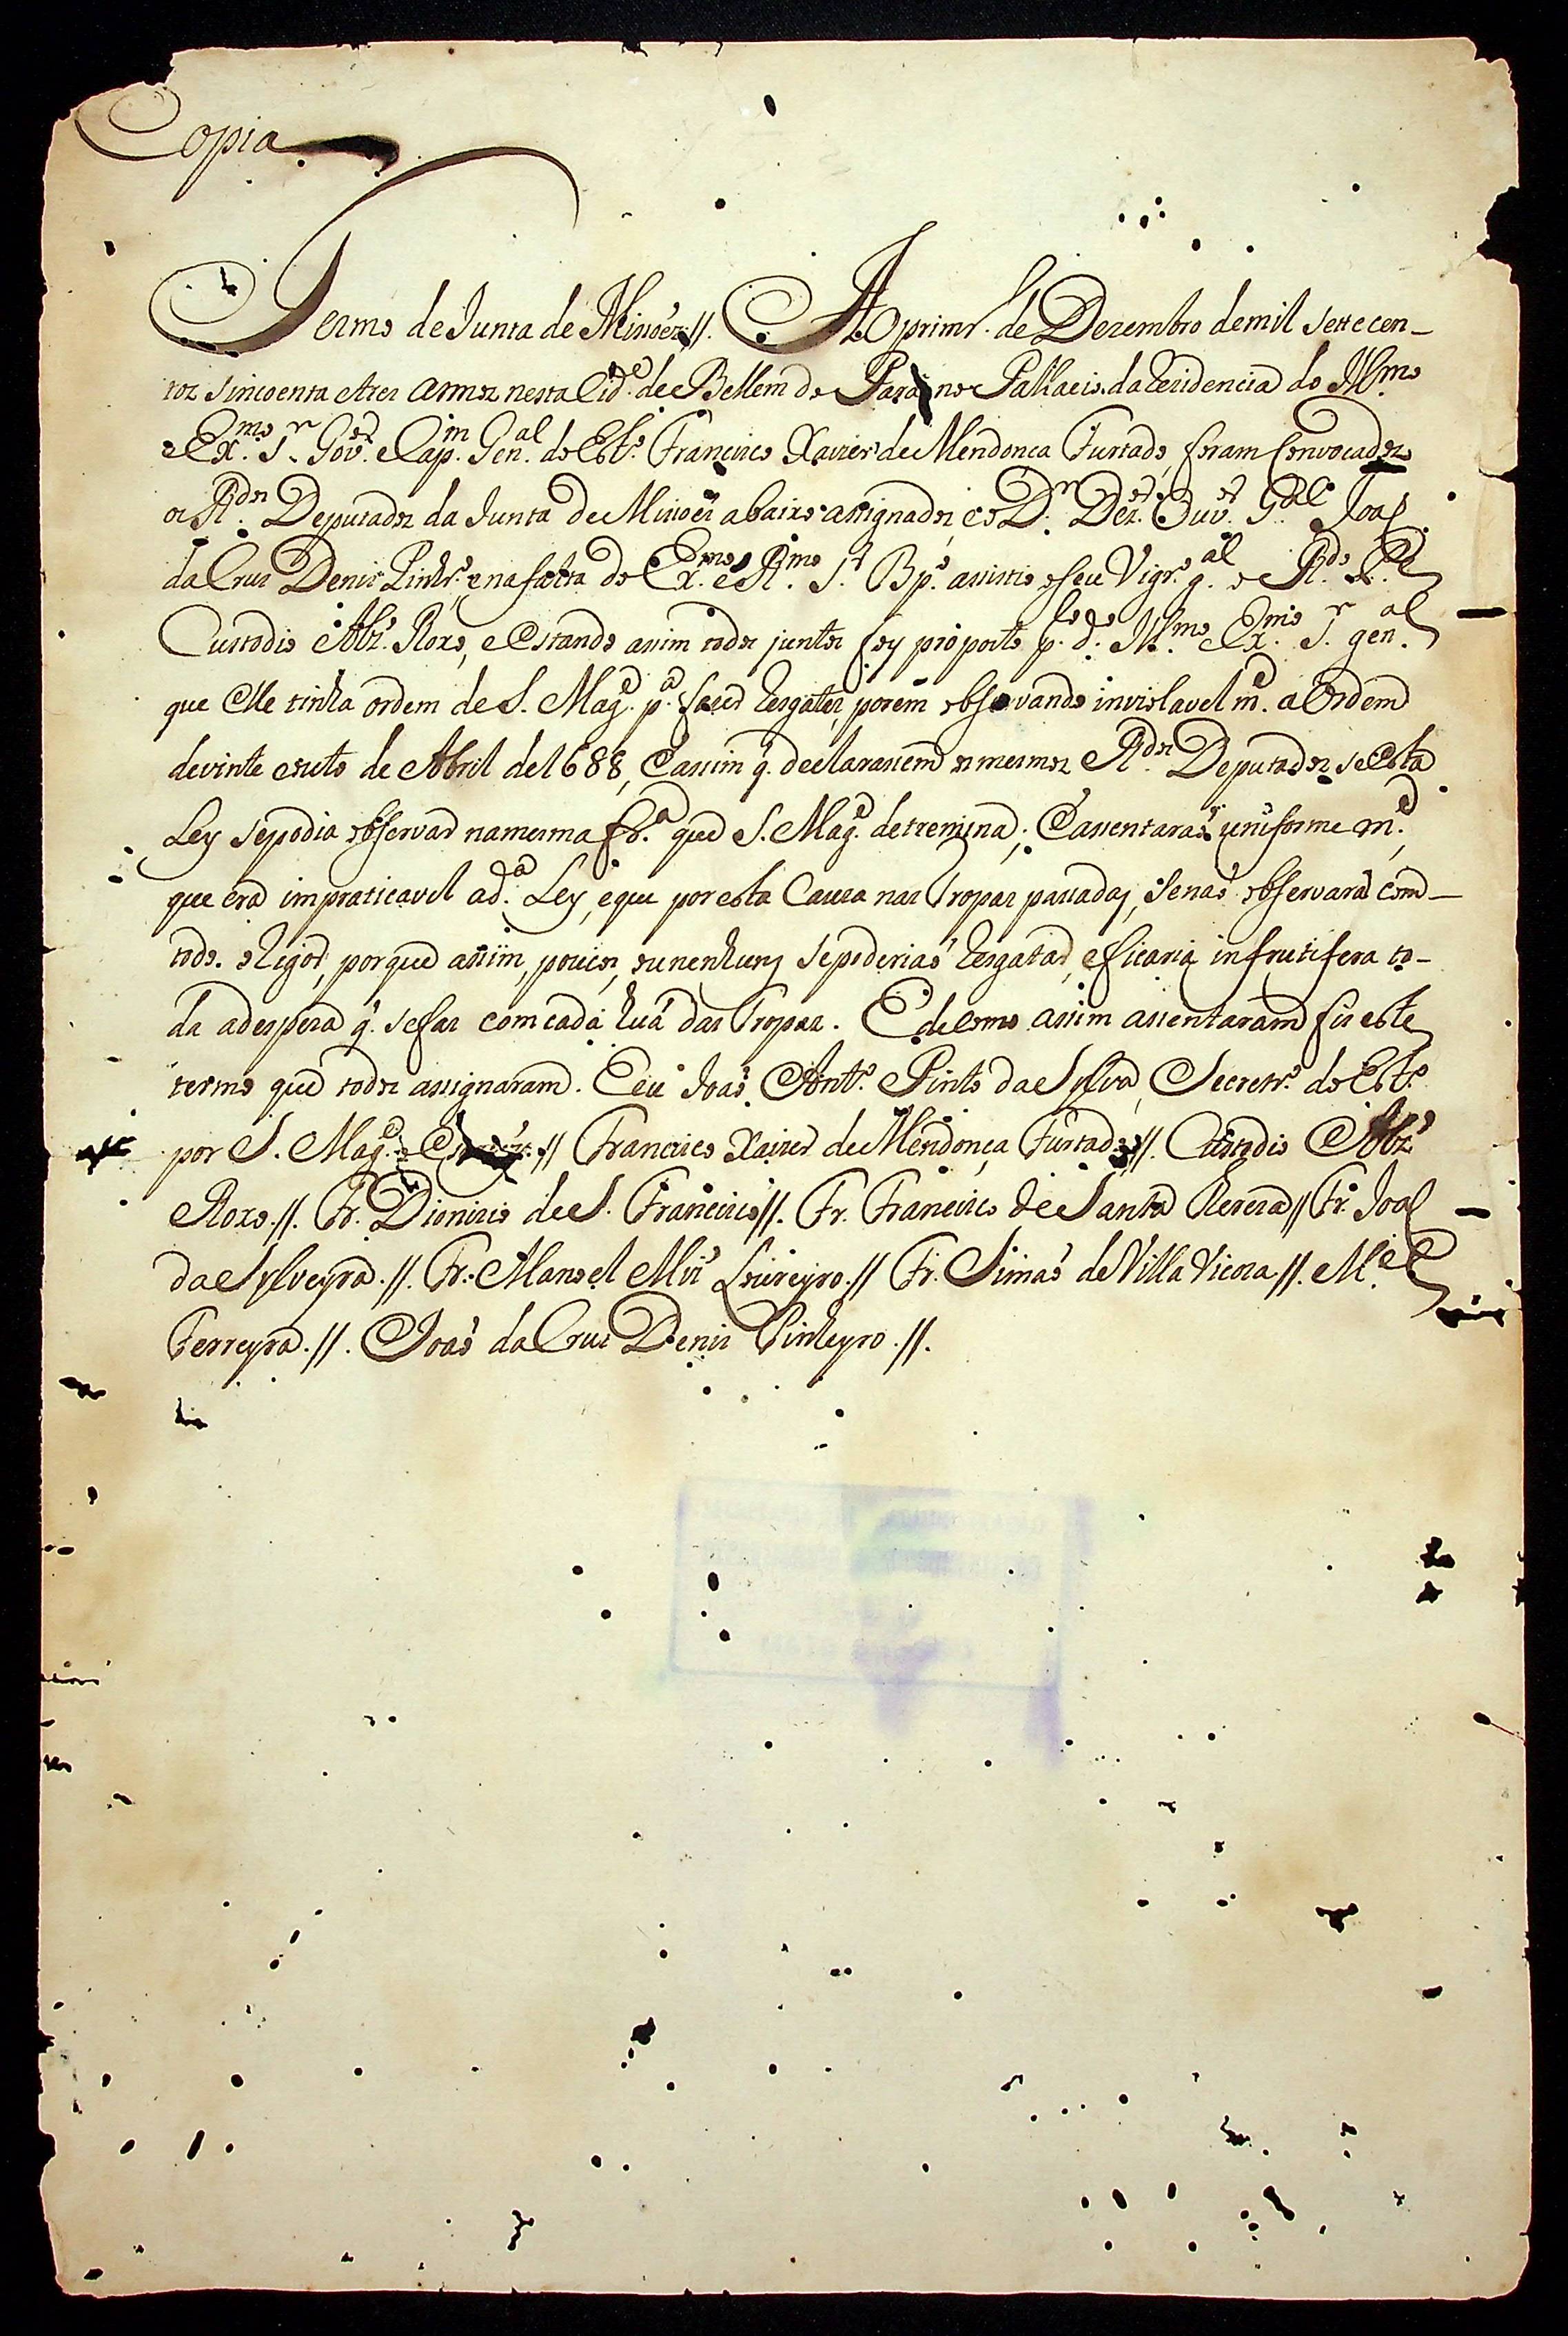 Copia
Termo de Junta de Missoẽs //. Ao primrº. de Dezembro de mil sette cen-
tos sincoenta e tres annos nesta Cidᵉ. de Bellem do Pará no Pallacio da Rezidencia do Illᵐᵒ.
e Exᵐᵒ. Sʳ. Govᵒʳ. e Capᵐ. Genᵃˡ. do Estº. Francisco Xavier de Mendonca Furtado, foram convocados
os Rᵈᵒˢ. Deputados da Junta de Missoẽs abaixo assignados, e o Dʳ. Dezᵒʳ. Ouvᵒʳ. Gᵃˡ. Joaõ
da Crus Denis Pinhrº. e na falta do Exᵐᵒ. e Rᵐᵒ. Sʳ. Bpº. assistio o seu Vigrº. gᵃˡ. o Rᵈᵒ. Pᵉ.
Custodio Abzº. Roxo, e Estando assim todos juntos foy proposto pˡᵒ. dº. Illᵐᵒ. e Exᵐᵒ. Sʳ. genᵃˡ.
que elle tinha ordem de S. Magᵉ. pᵃ. fazer resgates, porem observando inviolavel mᵉ. a Ordem
de vinte e outo de Abril de 1688, e assim q̃. declarassem os mesmos Rᵈᵒˢ. Deputados se Esta
Ley se podia observar na mesma frᵃ. que S. Magᵉ. detremina; E assentaraõ uniforme mᵉ.,
que era impraticavel a dᵃ. Ley, e que por esta Cauza nas Tropas passadas, se naõ observara com
todo. o Rigor, porque assim, poucos, ou nenhuns se poderiaõ resgatar, e ficaria infrutifera to-
da a despeza q̃. se faz com cada huã das Tropas. E de como assim assentaram fis este
termo que todos assignaram. E eu Joaõ Antº. Pinto da Sylva, Secretrº. do Estº.
por S. Magᵉ. o // Francisco Xavier de Mendonça Furtado //. Custodio Abzº.
Roxo. //. Fr. Dionizio de S. Francisco //. Fr. Francisco de Santa Thereza // Fr. Joaõ
da Sylveyra. //. Fr. Manoel Loureyro. // Fr. Simaõ de Villa Vicoza //. Mᵉˡ.
Ferreyra. //. Joaõ da Crus Denis Pinheyro. //.